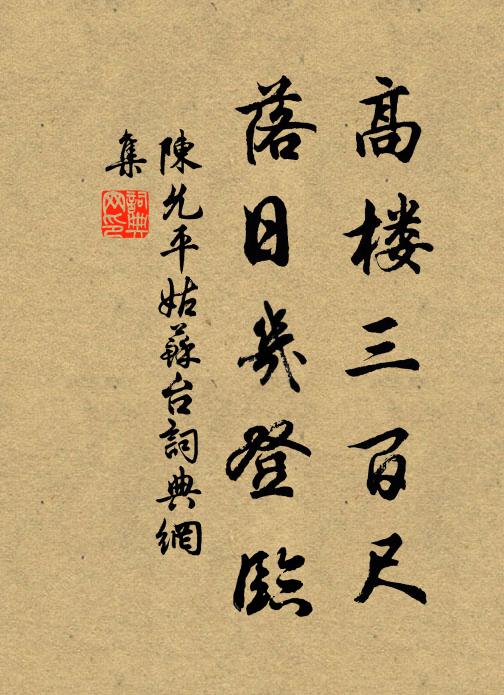 高楼三百尺
落日幾登臨
陳允平姑蘇台詞典網
集
詞典
网印